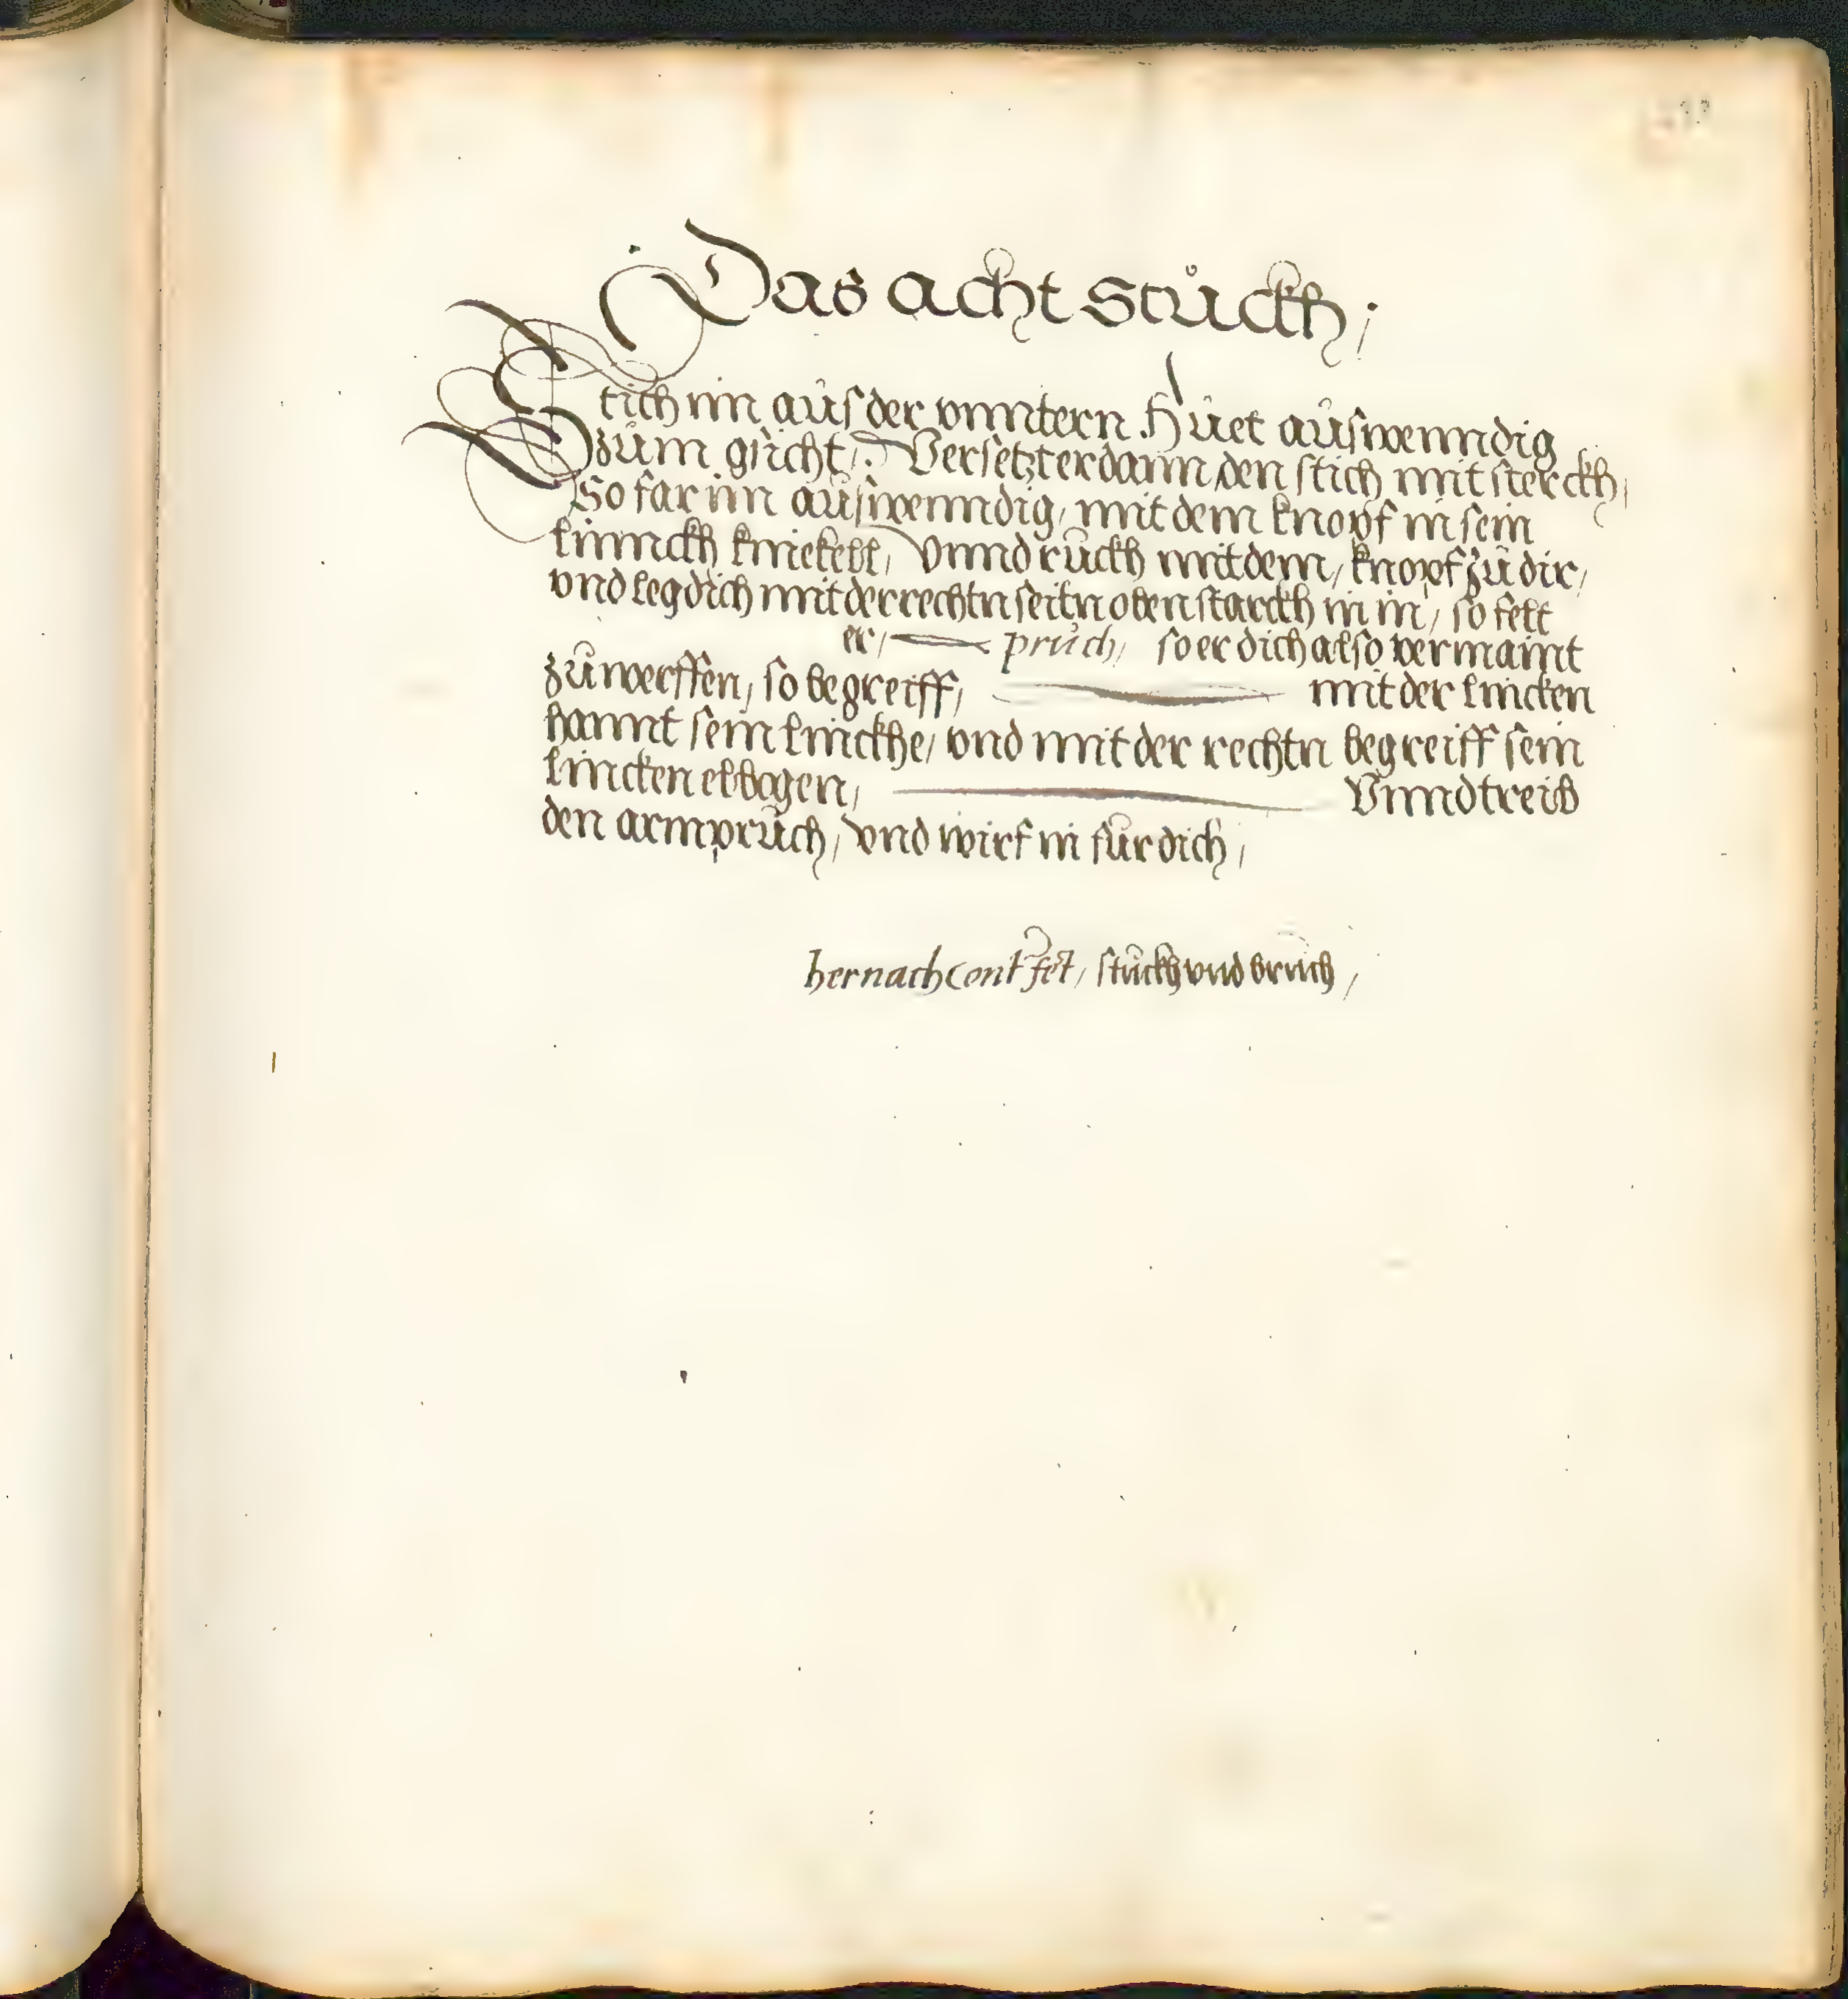 Das acht stůckh,
Stich im aůs der vnntern Hůet aůswenndig
zům gsicht, Versetzt er dann den stich mit sterckh,
So far im aůswenndig, mit dem knopf in sein
linnckh kniekell, Vnnd růckh mit dem, knopf zů dir,
vnd leg dich mit der rechtn seitn oben starckh in in, so felt
er, průch, so er dich also vermaint
zůwerffen, so begreiff, mit der lincken
hannt sein linckhe, vnd mit der rechtn begreiff sein
lincken elbogen, Vnnd treib
den armprůch, vnd wirf in fůr dich,
hernach Contrfet, stůckh vnd brůch,